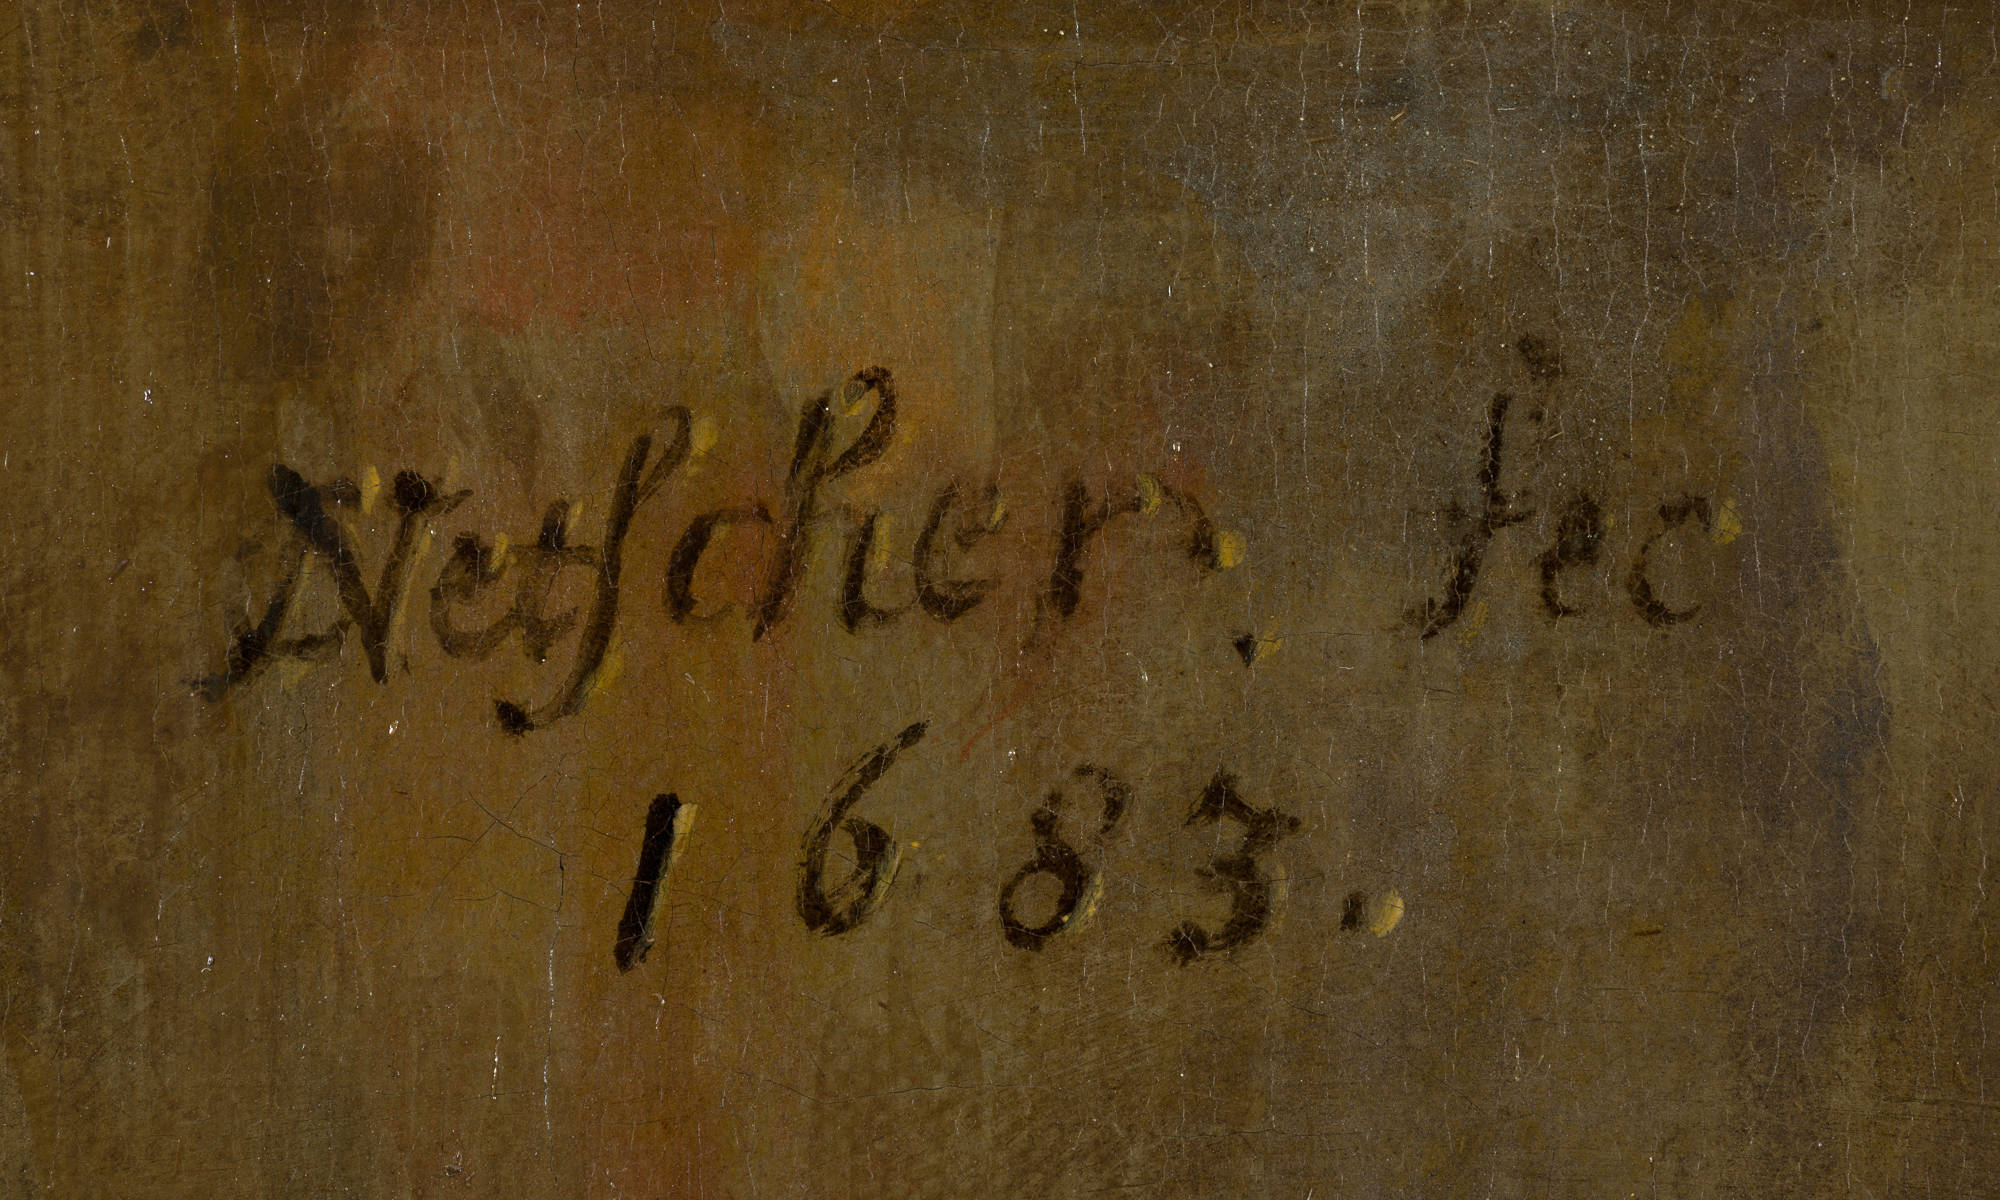 Netſcher. fec
1683.